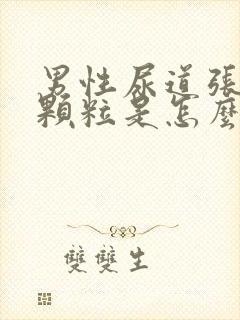 男性尿道張
顆粒是怎麼
雙雙生